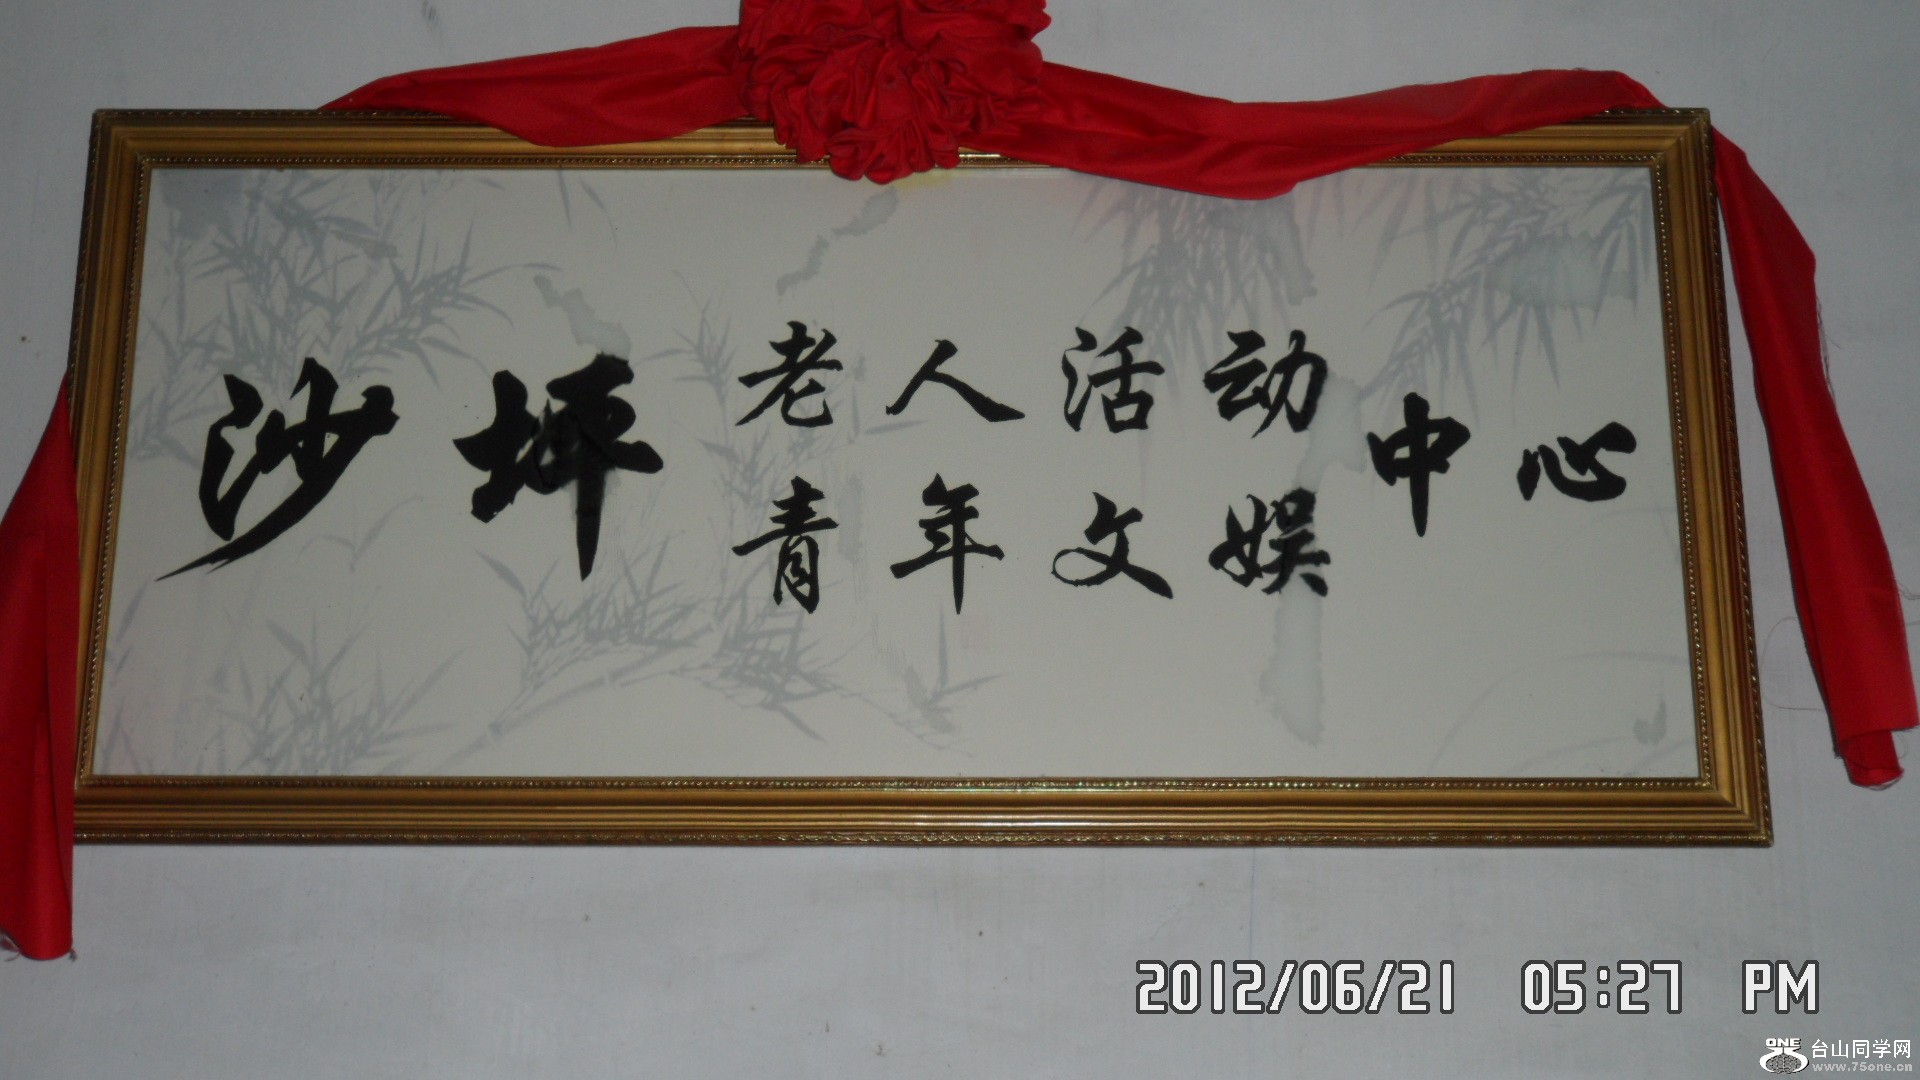 沙坪
老人活动
青年文娱
中心
2012/06/21 05:27 PM
ONE 台山同学网
www.75one.cn